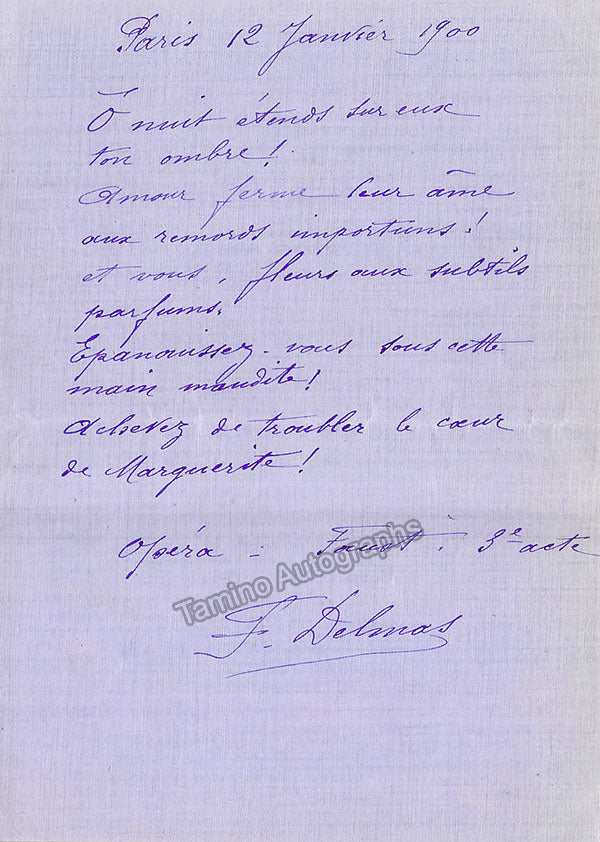 Paris 12 Janvier 1900
Ô nuit étends sur eux
ton ombre!
Amour ferme leur âme
aux remords importuns!
et vous, fleurs aux subtils
parfums,
Epanouissez-vous sous cette
main maudite!
Achevez de troubler le cœur
de Marguerite!
Opéra - Faust. 3e acte
Tamino Autographs
F. Delmas